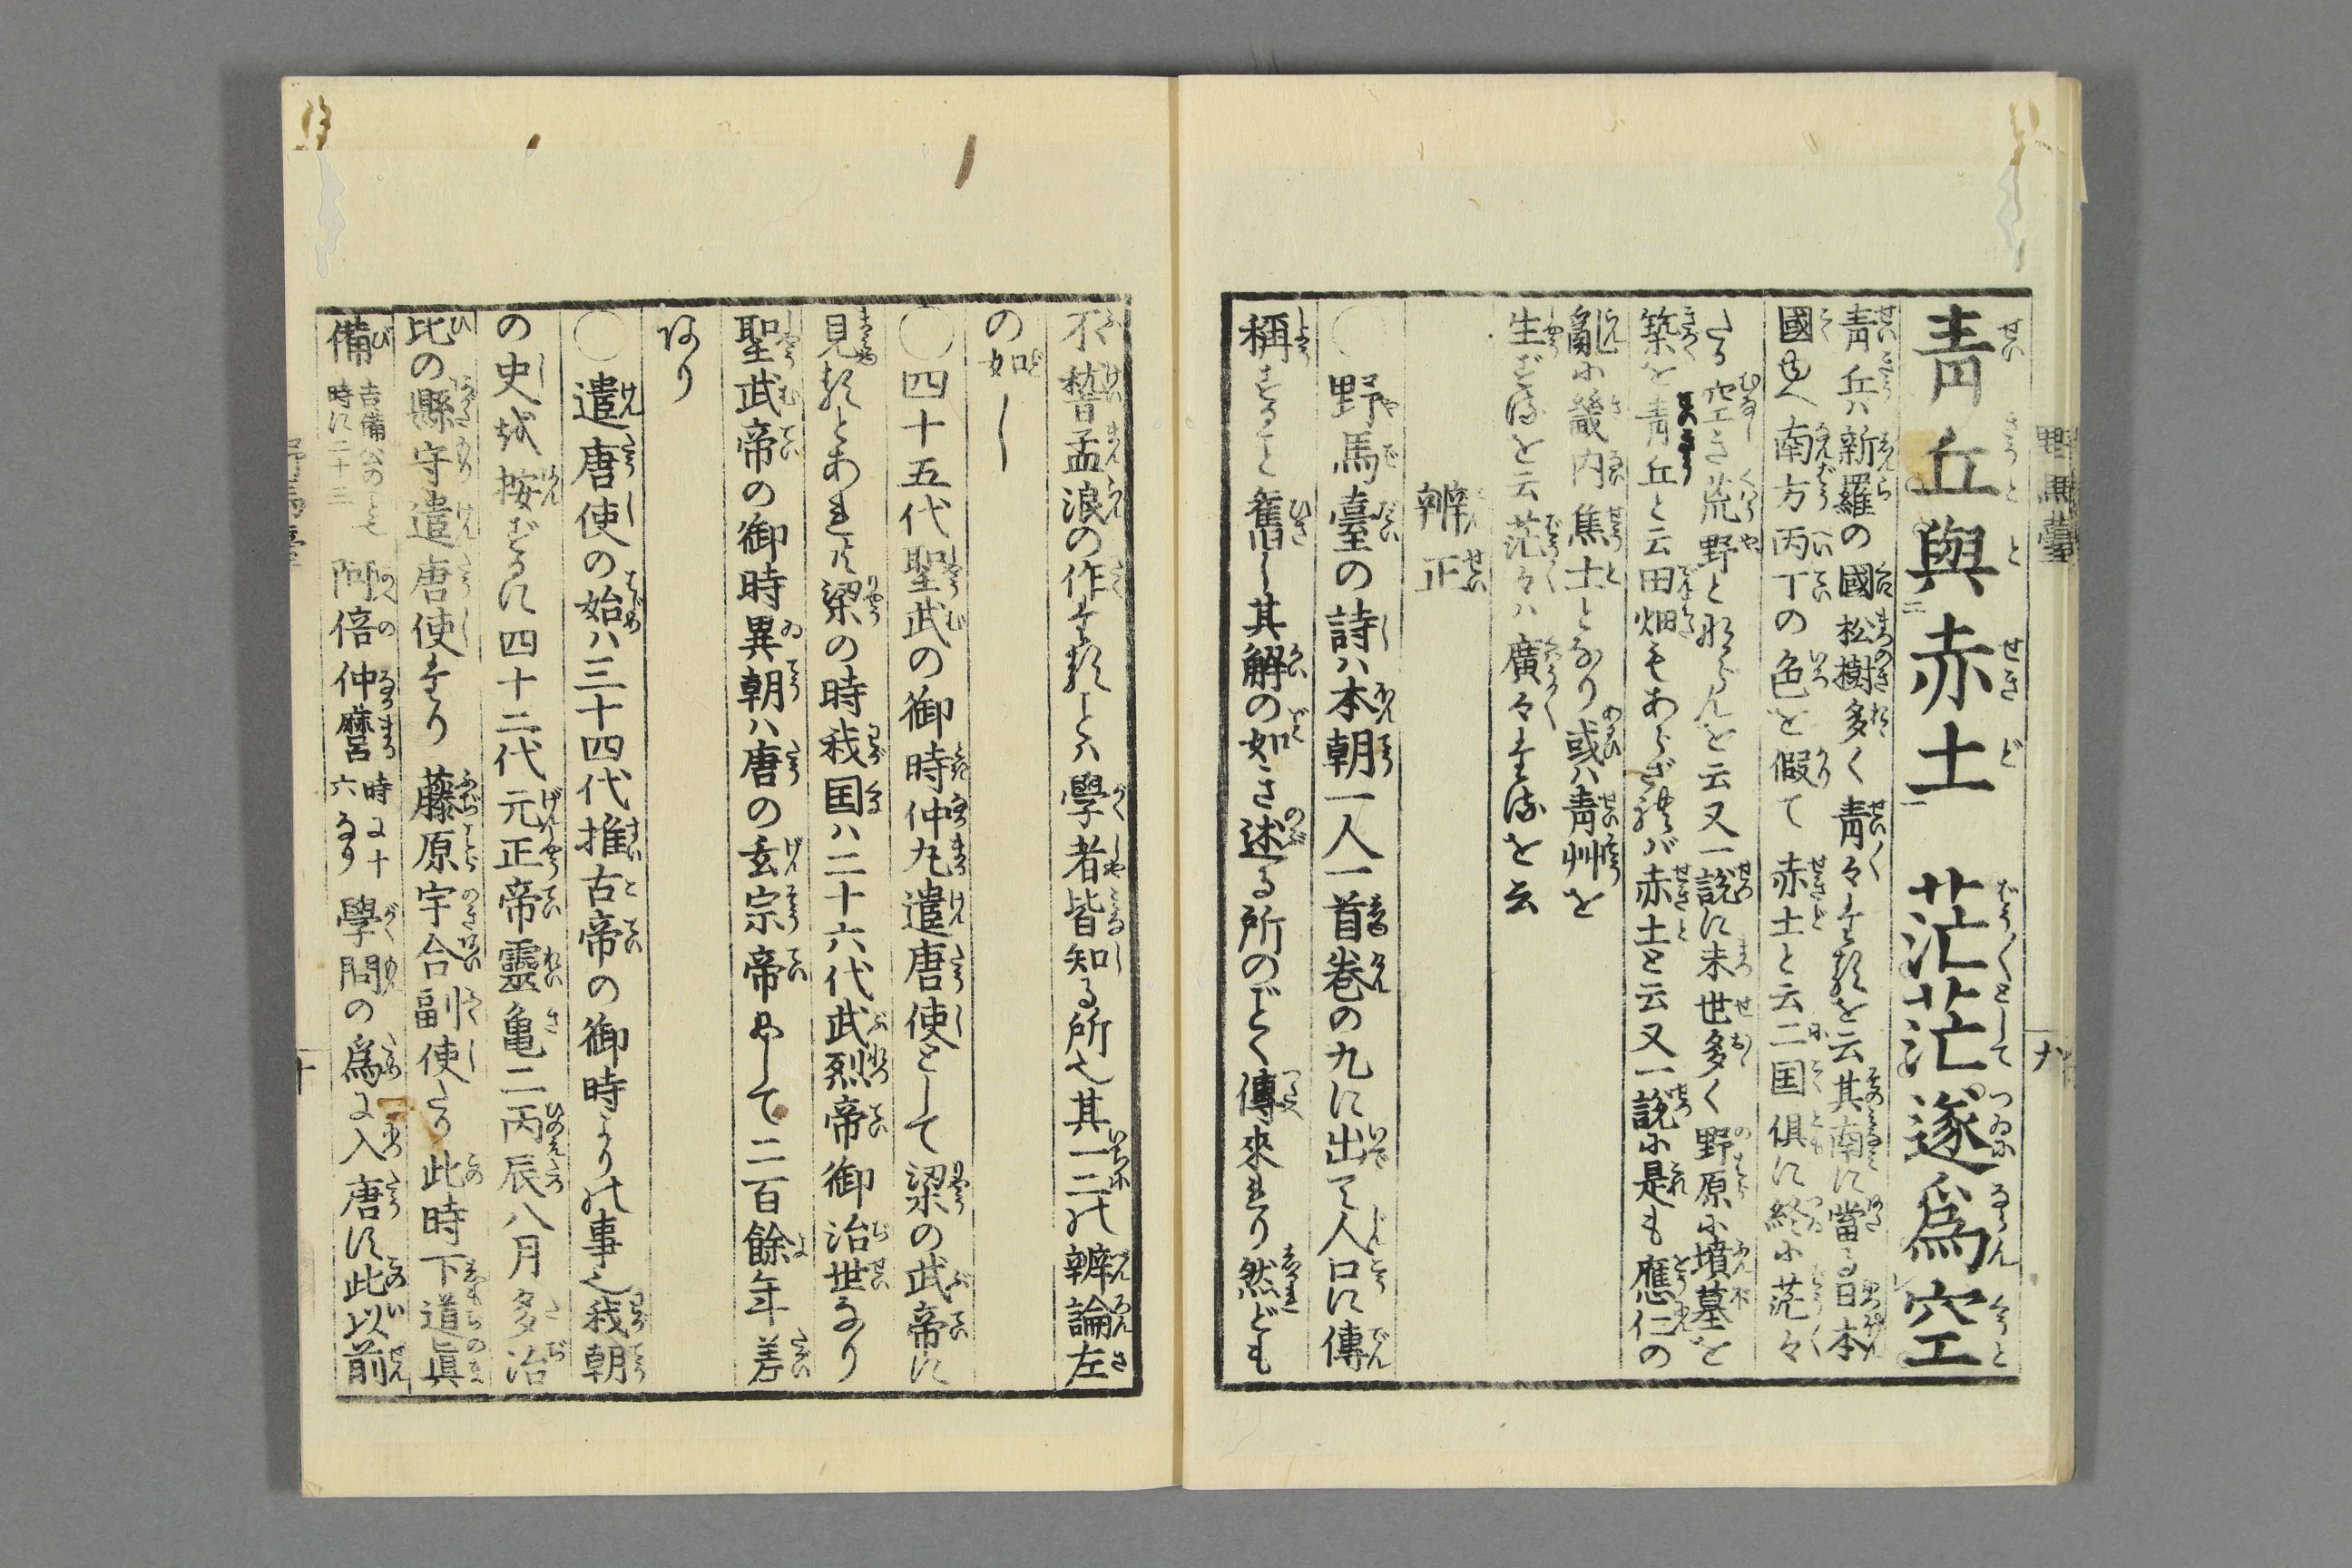 野馬臺
九
青丘與赤土　茫茫遂爲空
青丘ハ新羅の國松樹多く青々たるを云其南に當る日本
國也へ南方丙丁の色を假て赤土と云二国倶に終に茫々
たる空き荒野とならんを云又一説に末世多く野原に墳墓を
築を青丘と云田畑もあらざれバ赤土と云又一説に是も應仁の
亂に畿内焦土となり或ハ青艸を
生ずるを云茫々ハ廣々たるを云
辨正
〇野馬臺の詩ハ本朝一人一首巻の九に出て人口に傳
稱すること舊し其解の如き述る所のごく傳來れり然ども
不稽孟浪の作たることハ學者皆知る所也其一二の辨論左
の如し
〇四十五代聖武の御時仲丸遣唐使として梁の武帝に
見るとあれど梁の時我国ハ二十六代武烈帝御治世なり
聖武帝の御時異朝ハ唐の玄宗帝にして二百餘年差
あり
〇遣唐使の始ハ三十四代推古帝の御時よりの事也我朝
の史を按ずるに四十二代元正帝靈亀二丙辰八月多治
比の縣守遣唐使たり藤原宇合副使たり此時下道眞
備
吉備公のこと也
時に二十三
阿倍仲麿
時に十
六なり
學問の爲に入唐に此以前
野馬臺
十